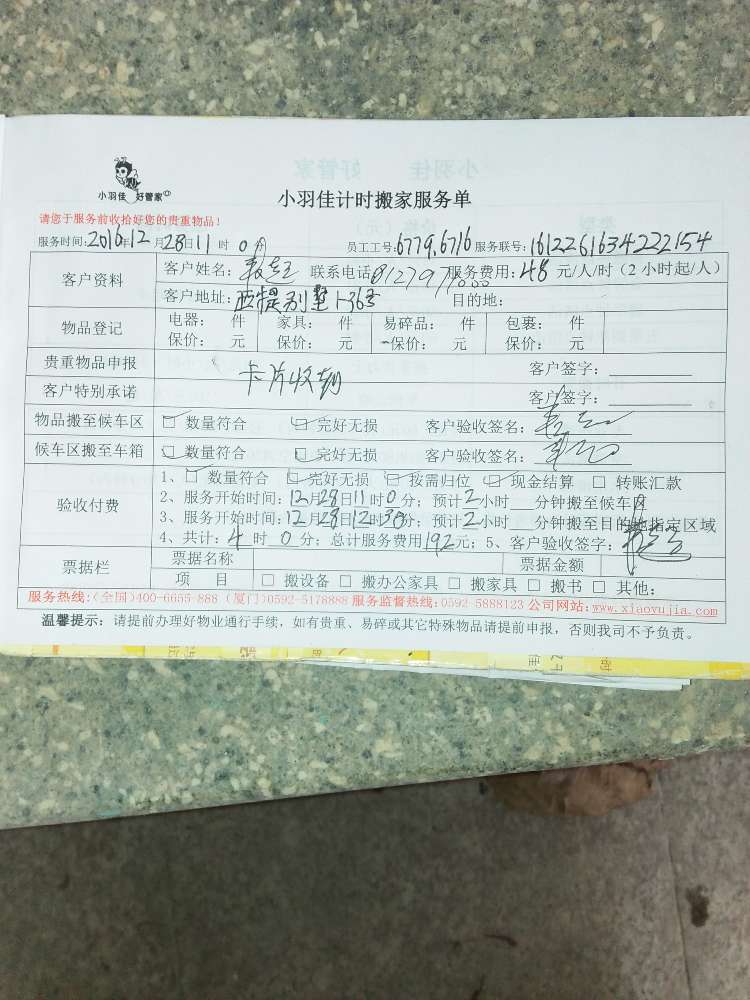 小羽佳 好管家
小羽佳计时搬家服务单
请您于服务前收拾好您的贵重物品!
服务时间:2016年12月28日11时0分 员工工号:6779,6716 服务联号:1612261634222154
客户资料 客户姓名: 联系电话 服务费用:48元/人/时(2小时起/人)
客户地址:西堤别墅 目的地:
物品登记 电器: 件 家具: 件 易碎品: 件 包裹: 件
保价: 元 保价: 元 保价: 元 保价: 元
贵重物品申报 客户签字:
卡片收纳
客户特别承诺 客户签字:
物品搬至候车区 数量符合 完好无损 客户验收签名:
候车区搬至车箱 数量符合 完好无损 客户验收签名:
验收付费 1、 数量符合 完好无损 按需归位 现金结算 转账汇款
2、服务开始时间:12月28日11时0分;预计2小时__分钟搬至候车区
3、服务开始时间:12月28日12时30分;预计2小时__分钟搬至目的地指定区域
4、共计:4时0分;总计服务费用192元;5、客户验收签字:
票据栏 票据名称 票据金额
项 目 搬设备 搬办公家具 搬家具 搬书 其他:
服务热线:(全国)400-6655-888 (厦门)0592-5178888 服务监督热线:0592-5888123 公司网站:www.xiaoyujia.com
温馨提示:请提前办理好物业通行手续,如有贵重、易碎或其它特殊物品请提前申报,否则我司不予负责。